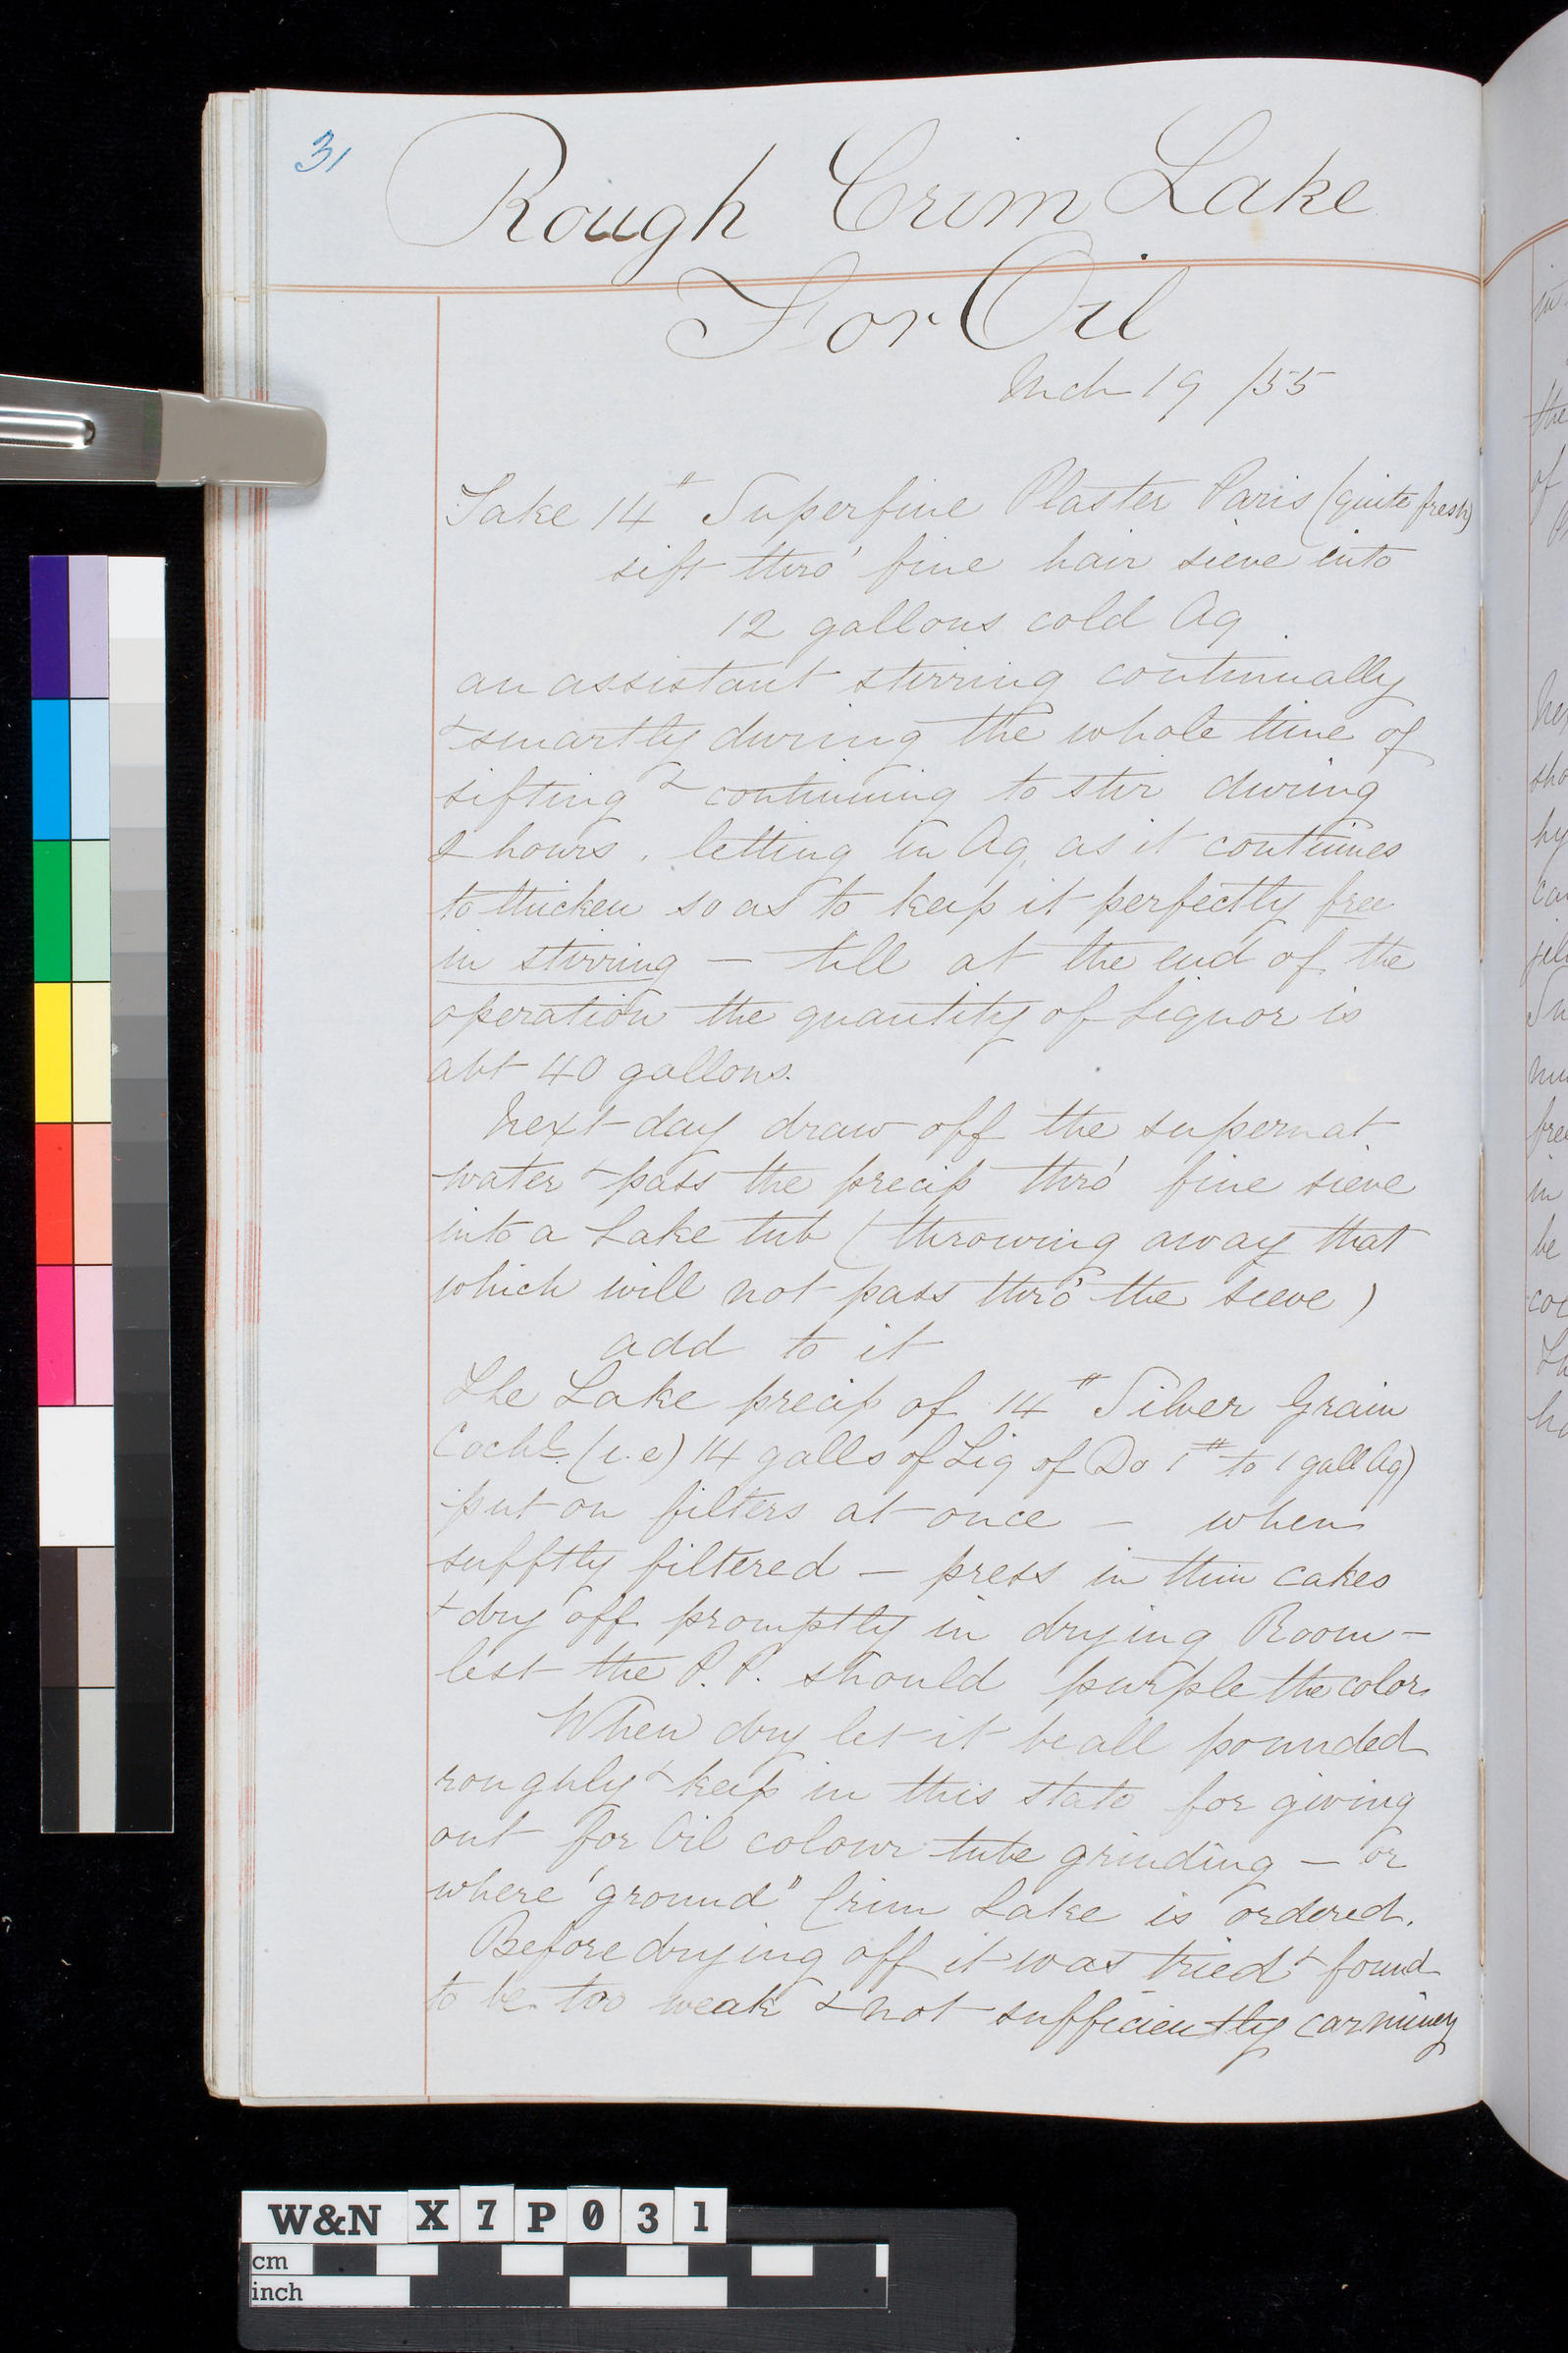 31
Rough Crim Lake
For Oil
Mch 19 /55
Take 14# Superfine Plaster Paris (quite fresh)
sift thro' fine hair sieve into
12 gallons cold Aq
an assistant stirring continually
& smartly during the whole time of
sifting & continuing to stir during
2 hours. letting in Aq, as it continues
to thicken so as to keep it perfectly free
in stirring — till at the end of the
operation the quantity of Liquor is
abt 40 gallons.
Next day draw off the supernat.
water & pass the precip thro' fine sieve
into a Lake tub (throwing away that
which will not pass thro' the sieve)
add to it
The Lake precip of 14# Silver Grain
Cochl. (i.e) 14 galls of Liq of Do 1# to 1 gall Aq)
put on filters at once — when
sufftly filtered — press in thin cakes
& dry off promptly in drying Room —
lest the P.P. should purple the color.
When dry let it be all pounded
roughly & keep in this state for giving
out for Oil colour tube grinding — or
where "ground" Crim Lake is ordered.
Before drying off it was tried & found
to be too weak & not sufficiently carminey
W&N X7P031
cm
inch